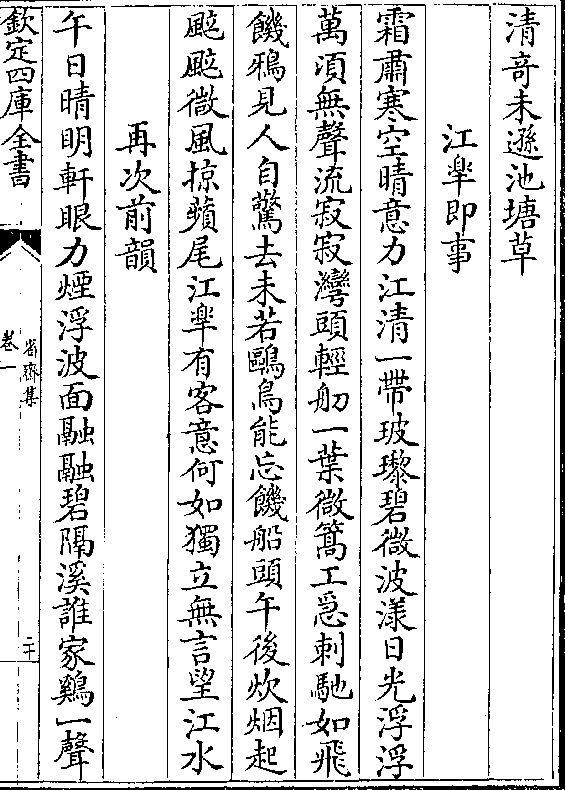 清奇未遜池塘草
江臯即事
霜肅寒空晴意力江清一帶玻瓈碧微波漾日光浮浮
萬頃無聲流寂寂灣頭輕舠一葉微篙工急刺馳如飛
饑鴉見人自驚去未若鷗鳥能忘饑船頭午後炊烟起
颭颭微風掠蘋尾江臯有客意何如獨立無言望江水
再次前韻
午日晴明軒眼力煙浮波面融融碧隔溪誰家鷄一聲
欽定四庫全書
省齋集
卷一
二十